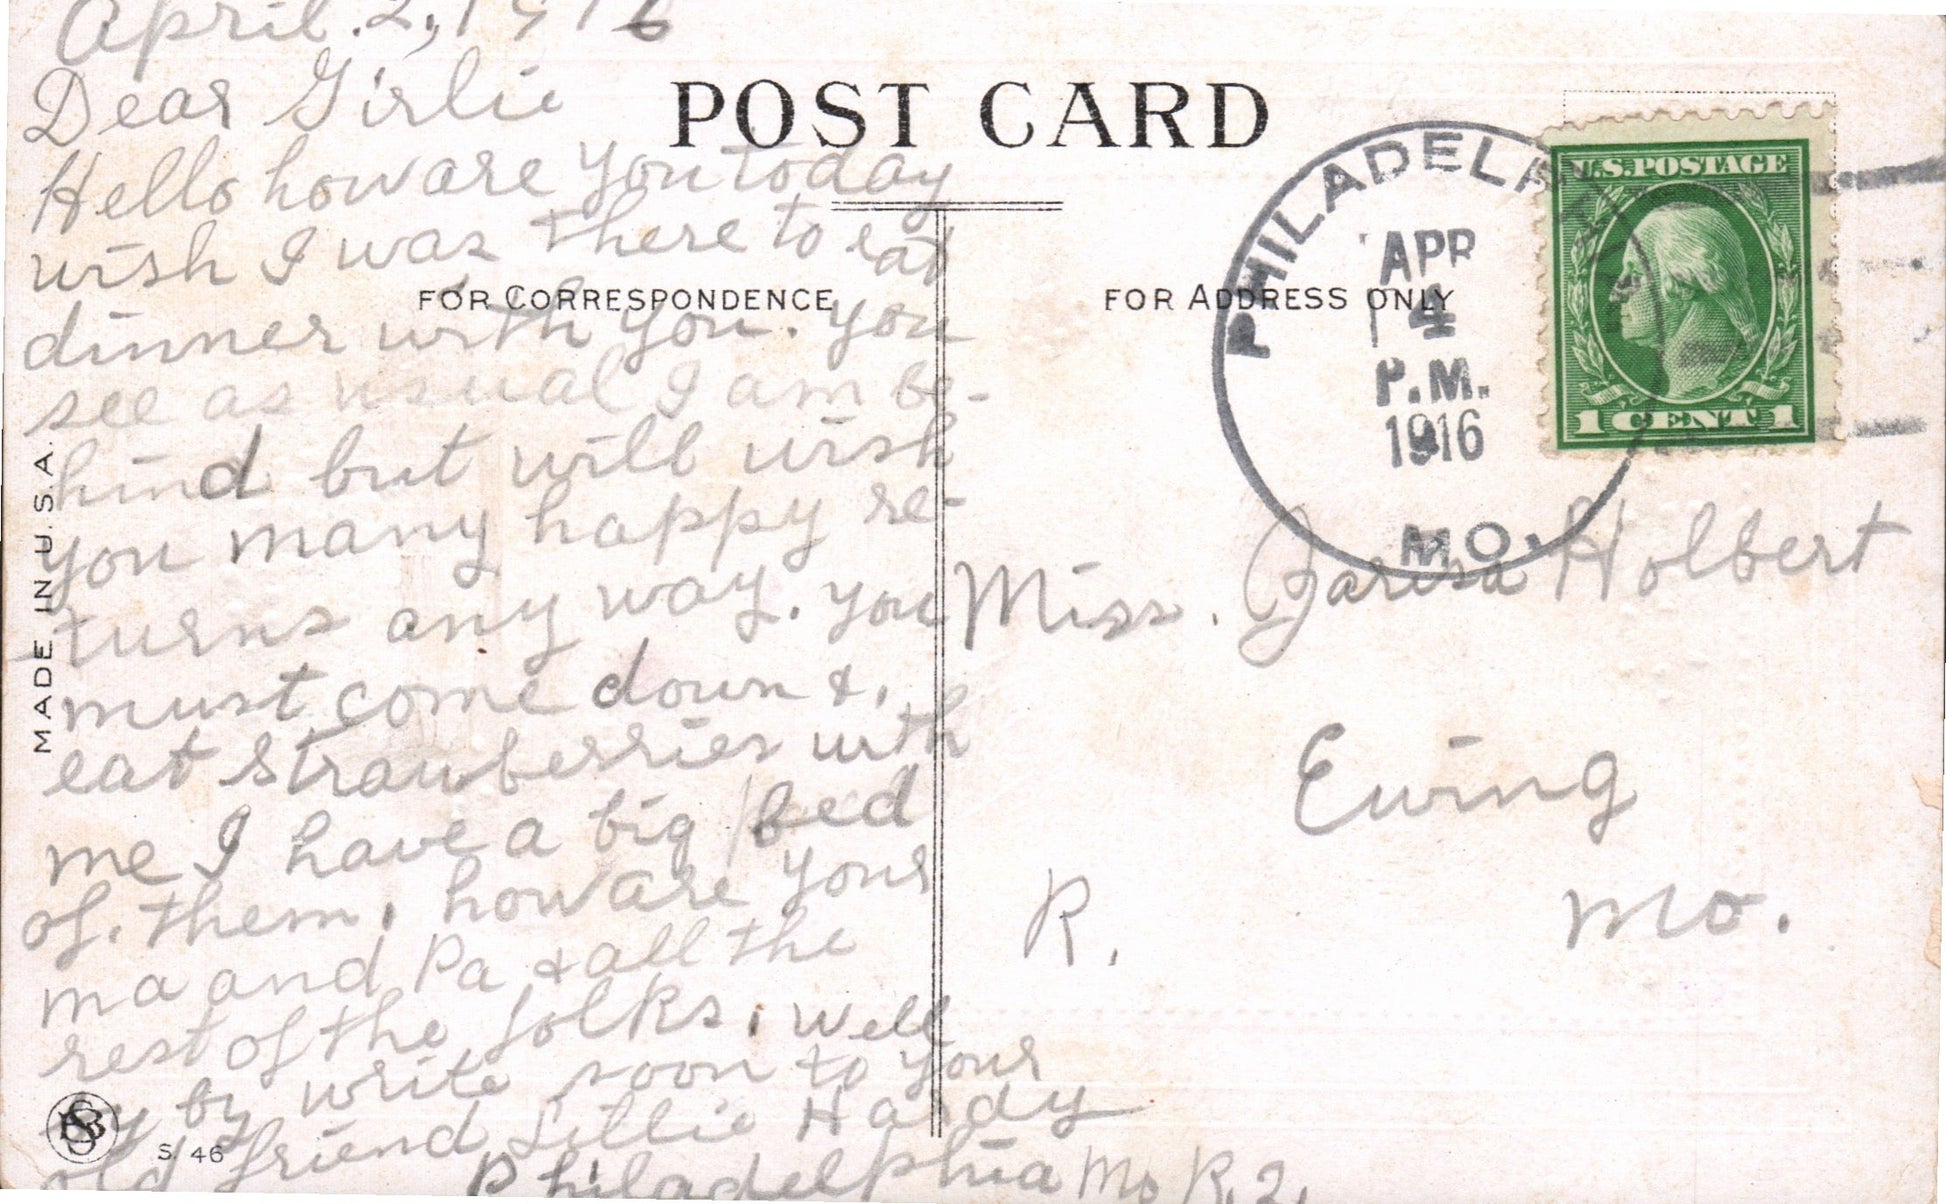 April. 2, 1916
Dear Girlie
Hello how are you today
wish I was there to eat
dinner with you. you
see as usual I am be-
hind but will wish
you many happy re-
turns any way. you
must come down &.
eat strawberries with
me I have a big bed
of. them. how are your
ma and Pa & all the
rest of the folks. Well
by by write soon to your
old friend Lillie Hardy
Philadelphia Mo R. 2.
POST CARD
FOR CORRESPONDENCE
FOR ADDRESS ONLY
MADE IN U.S.A.
S. 46
PHILADELPHIA
APR
4
P.M.
1916
MO.
U.S. POSTAGE
1 CENT 1
Miss. Holbert
Ewing
Mo.
R.